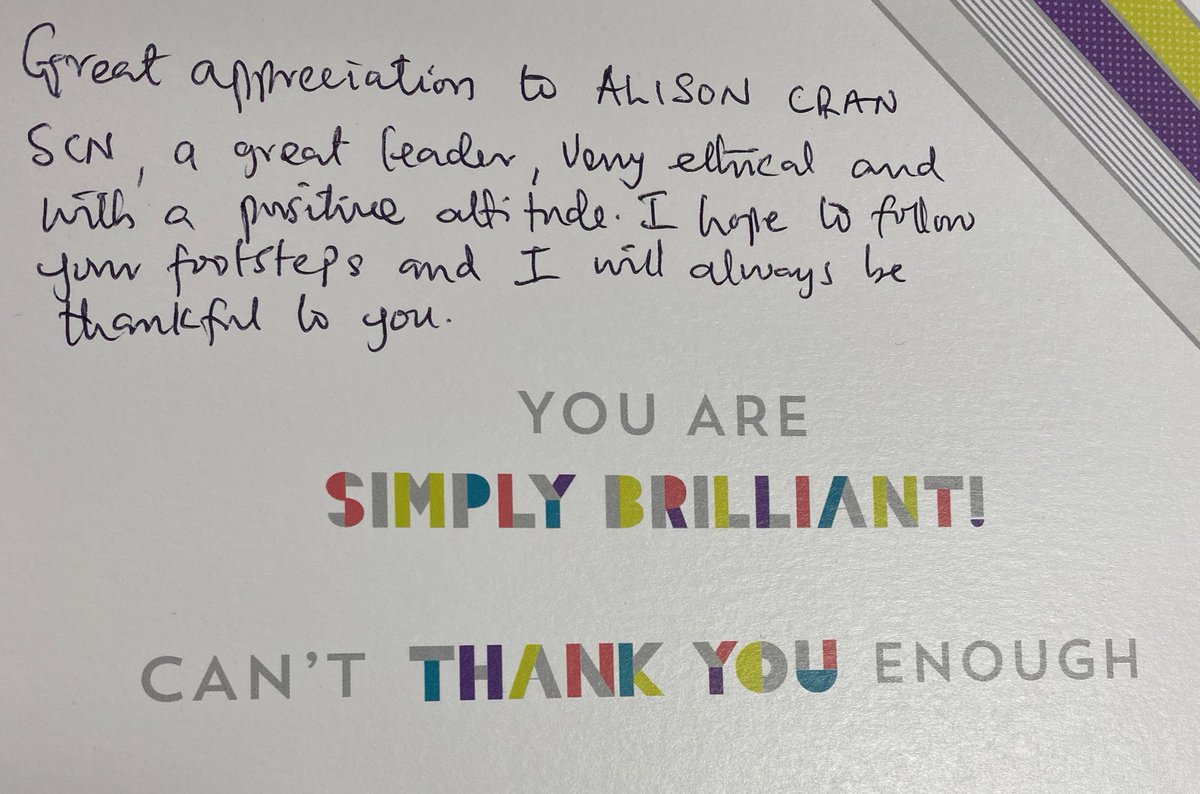 Great appreciation to ALISON CRAN
SCN, a great leader, Very ethical and
with a positive attitude. I hope to follow
your footsteps and I will always be
thankful to you.
YOU ARE
SIMPLY BRILLIANT!
CAN'T THANK YOU ENOUGH